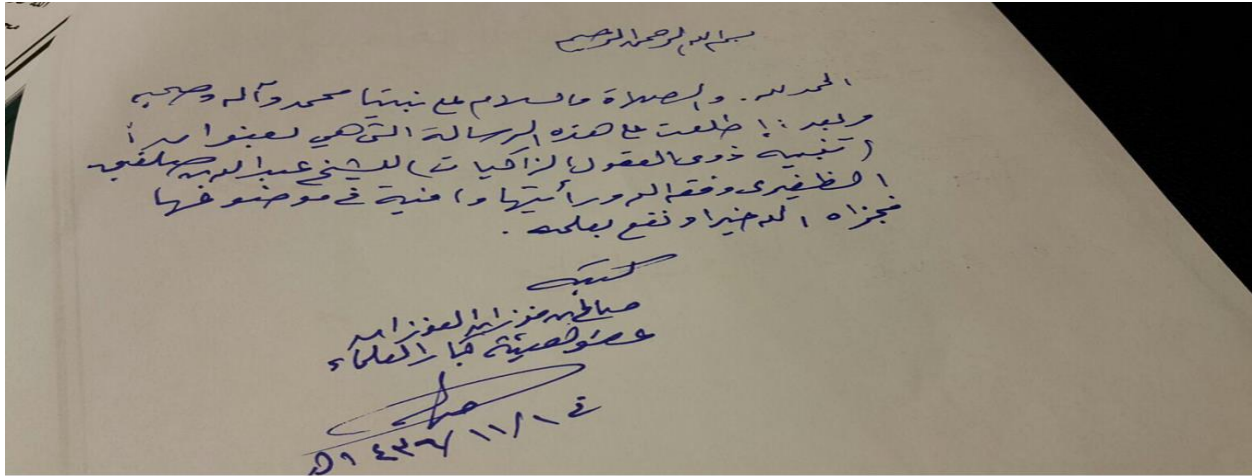 بسم الله الرحمن الرحيم
الحمد لله. والصلاة والسلام على نبينا محمد وآله وصحبه
وبعد: اطلعت على هذه الرسالة التي هي بعنوان
(تنبيه ذوي العقول الزاكيات) للشيخ عبد الله بن صلفيق
الظفيري وفقه الله ورأيتها وافية في موضوعها
فجزاه الله خيرا ونفع بعلمه.
كتبه
صالح بن فوزان الفوزان
عضو هيئة كبار العلماء
في ١٤٣٦/١١/١هـ